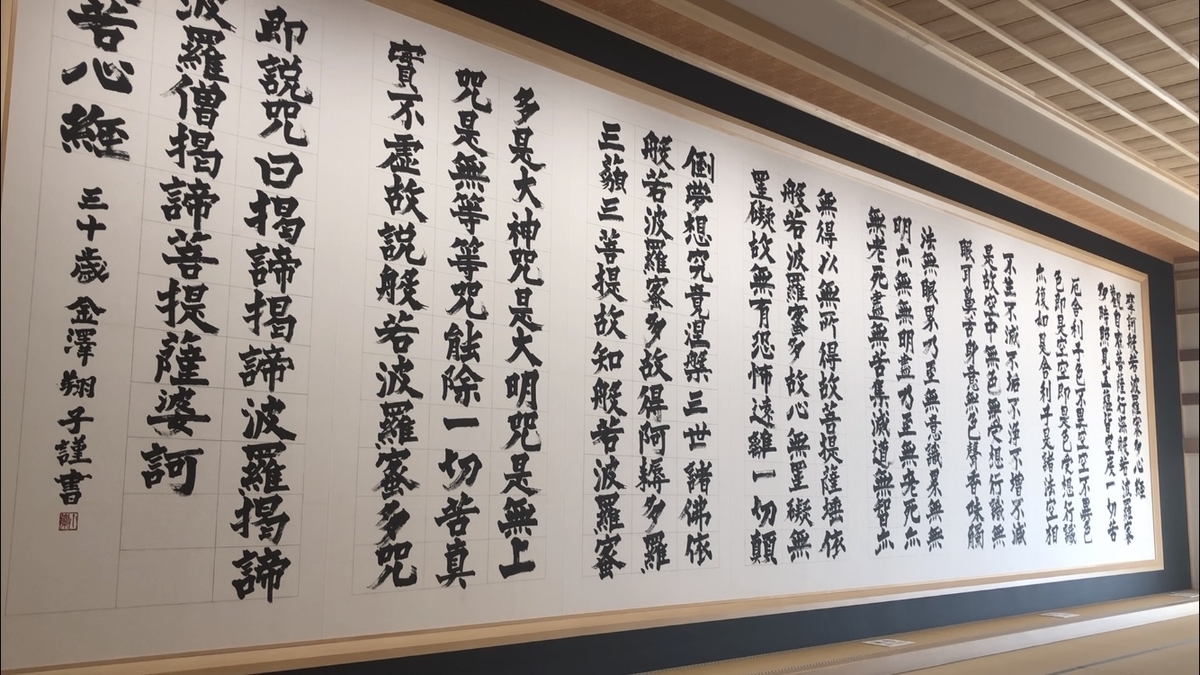 摩訶般若波羅蜜多心經
觀自在菩薩行深般若波羅蜜
多時照見五蘊皆空度一切苦
厄舎利子色不異空空不異色
色即是空空即是色受想行識
亦復如是舎利子是諸法空相
不生不滅不垢不浄不増不減
是故空中無色無受想行識無
眼耳鼻舌身意無色聲香味觸
法無眼界乃至無意識界無無
明亦無無明盡乃至無老死亦
無老死盡無苦集滅道無智亦
無得以無所得故菩提薩埵依
般若波羅蜜多故心無罣礙無
罣礙故無有恐怖遠離一切顛
倒夢想究竟涅槃三世諸佛依
般若波羅蜜多故得阿耨多羅
三藐三菩提故知般若波羅蜜
多是大神咒是大明咒是無上
咒是無等等咒能除一切苦真
實不虚故説般若波羅蜜多咒
即説咒曰揭諦揭諦波羅揭諦
波羅僧揭諦菩提薩婆訶
若心經 三十歳 金澤翔子謹書